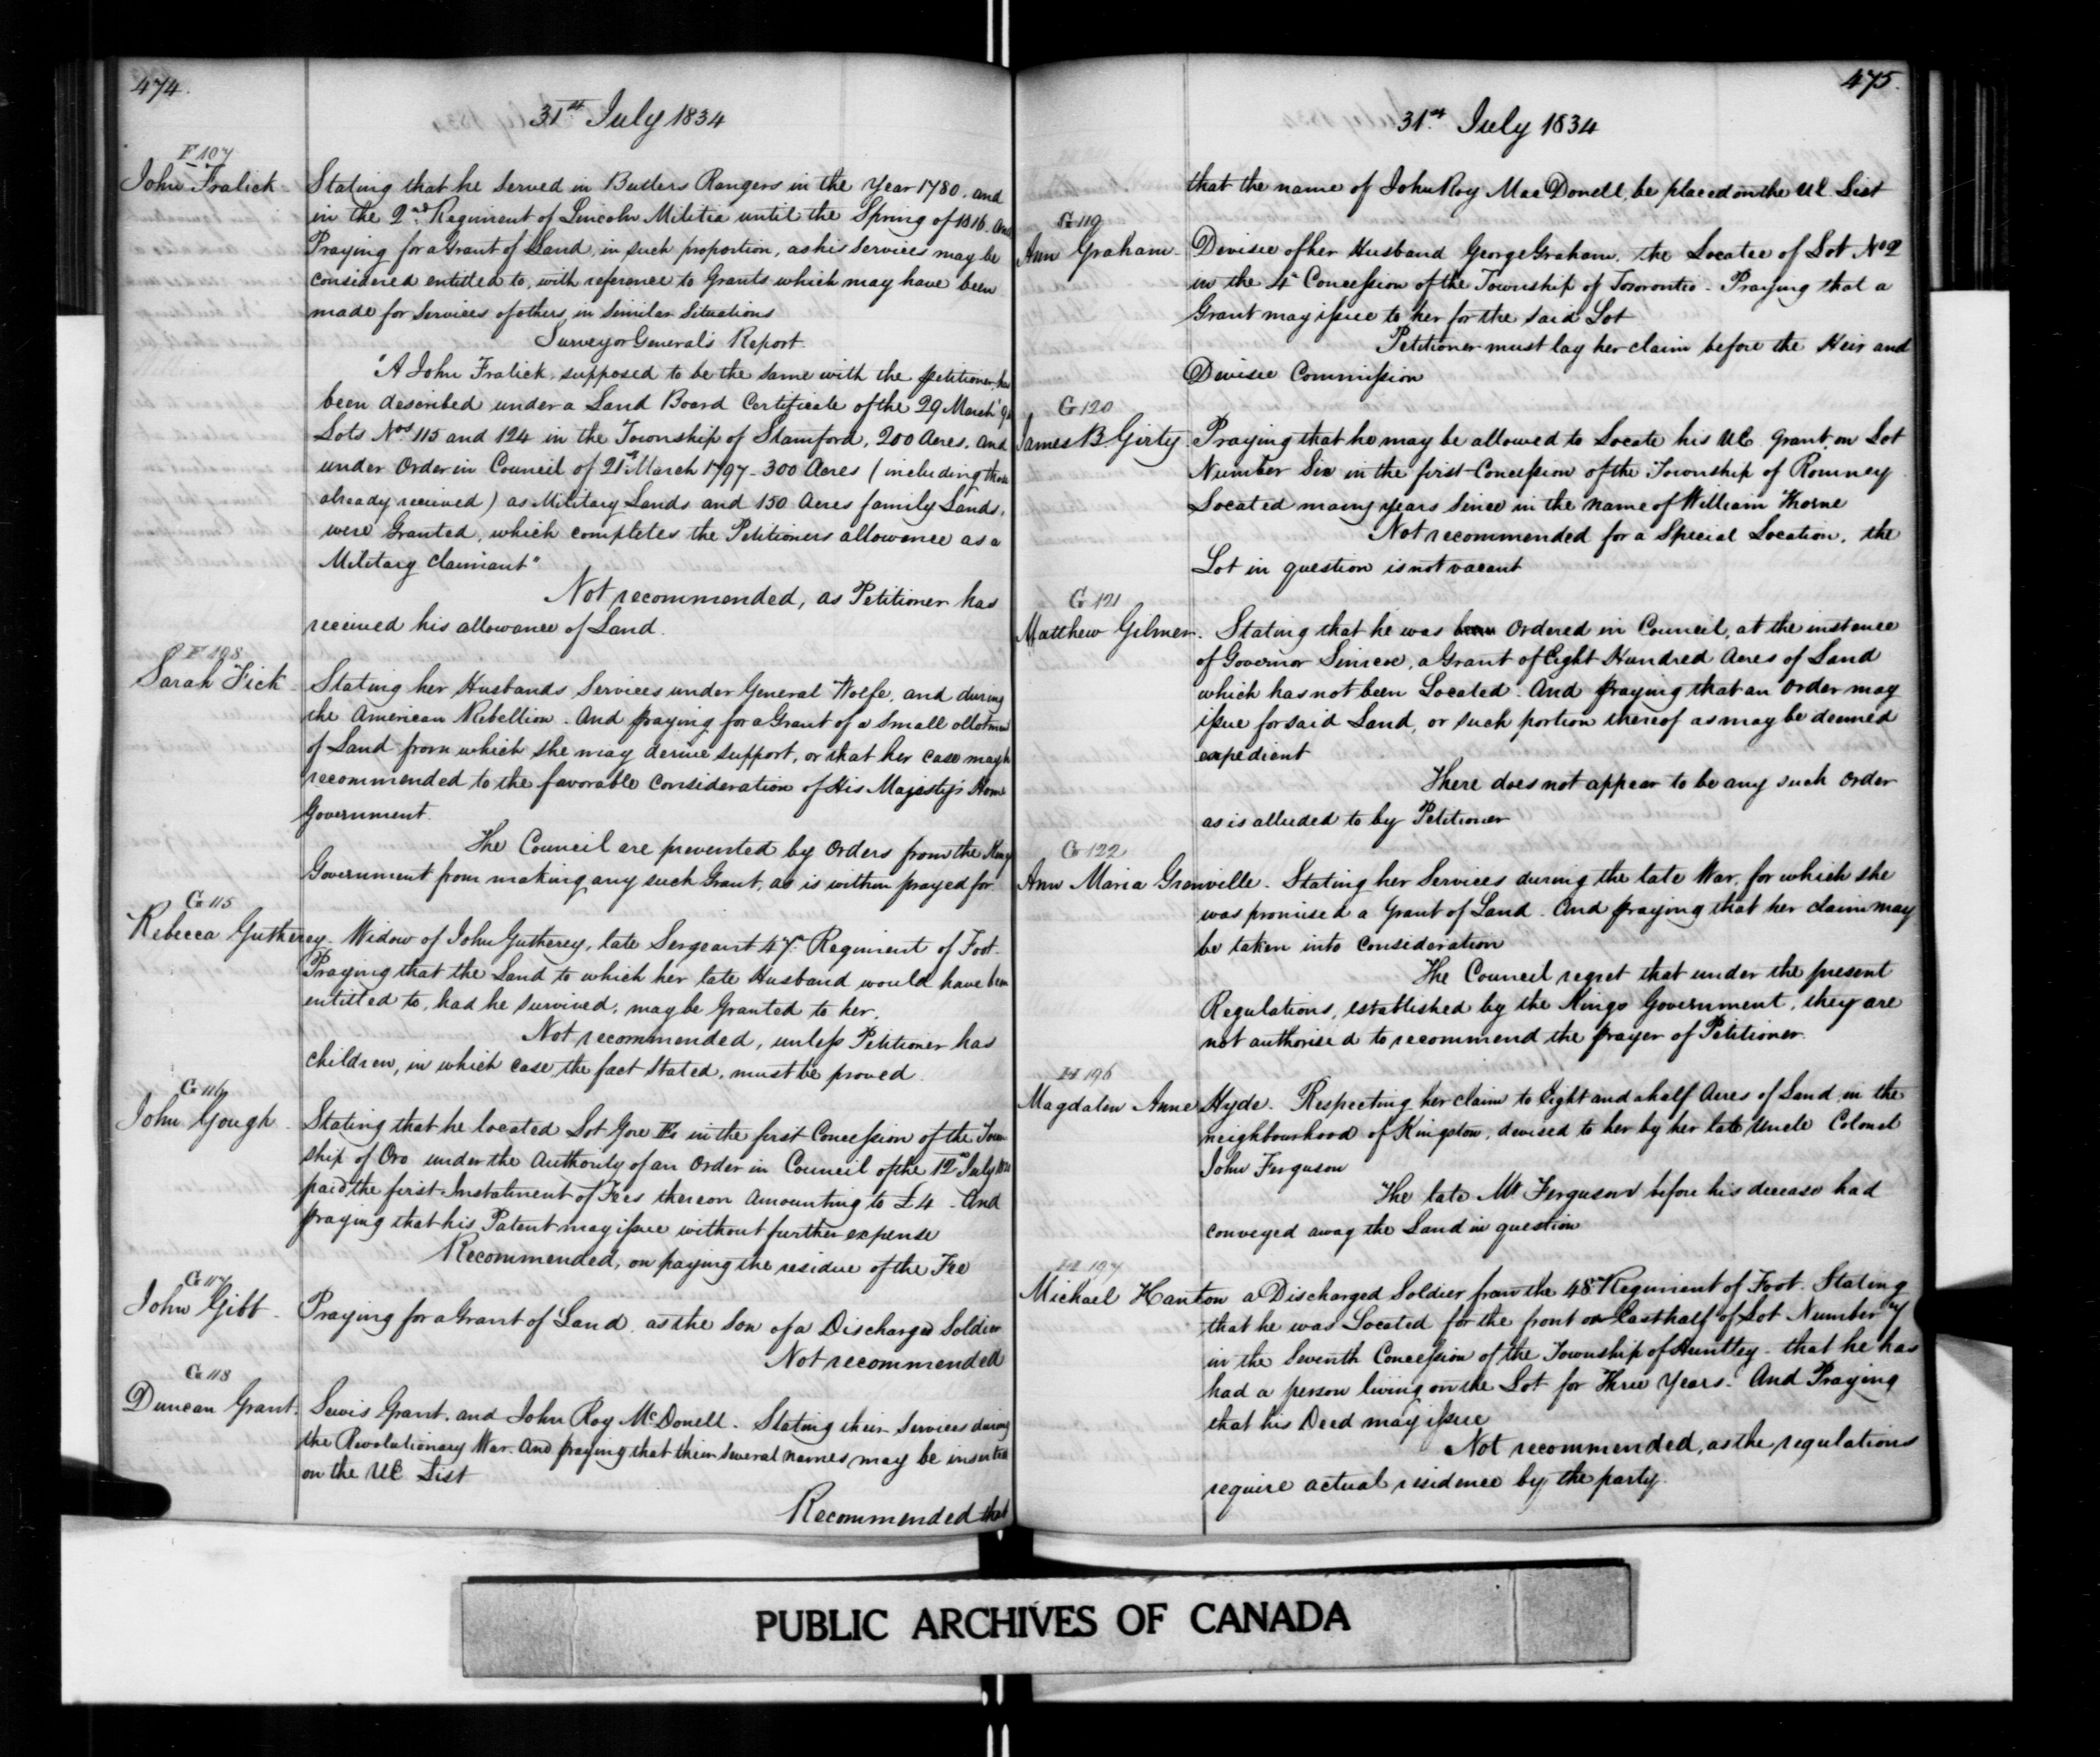 474.
31st July 1834
F 107
John Fralick. Stating that he Served in Butlers Rangers in the Year 1780. and
in the 2nd Regiment of Lincoln Militia until the Spring of 1816. And
Praying for a Grant of Land, in such proportion, as his Services may be
considered entitled to, with reference to Grants which may have been
made for Services of others, in Similar Situations
Surveyor General's Report.
"A John Fralick, supposed to be the same with the petitioner, has
been described under a Land Board Certificate of the 29 March
Lots Nos 115 and 124 in the Township of Stamford, 200 Acres. And
under Order in Council of 21st March 1797 - 300 Acres (including those
already received) as Military Lands and 150 Acres family Lands,
were Granted, which completes the Petitioners allowance as a
Military Claimant"
Not recommended, as Petitioner has
received his allowance of Land.
Sarah Fick. Stating her Husbands Services under General Wolfe, and during
the American Rebellion. And praying for a Grant of a Small allotment
of Land from which she may derive support, or that her case may be
recommended to the favorable Consideration of His Majesty's Home
Government.
The Council are prevented by Orders from the
Government from making any such Grant, as is within prayed for.
G 115
Rebecca Gutherey. Widow of John Gutherey, late Sergeant 47th Regiment of Foot.
Praying that the Land to which her late Husband would have been
entitled to, had he survived, may be Granted to her.
Not recommended, unless Petitioner has
children, in which case the fact Stated, must be proved.
G 116
John Gough. Stating that he located Lot Gore in the first Concession of the Town
ship of Oro under the Authority of an Order in Council of the 12th July
paid the first Instalment of Fees thereon Amounting to £4 - And
praying that his Patent may issue without further expense
Recommended, on paying the residue of the Fee
G 117
John Gibb. Praying for a Grant of Land. as the Son of a Discharged Soldier
Not recommended
G 118
Duncan Grant. Lewis Grant. and John Roy McDonell. Stating their Services during
the Revolutionary War. And praying that their Several names may be inserted
on the UE List
Recommended that
475.
31st July 1834
that the name of John Roy MacDonell, be placed on the UE. List
G 119
Ann Graham. Devisee of her Husband George Graham. the Locatee of Lot No 2
in the 4th Concession of the Township of Tosorontio - Praying that a
Grant may issue to her for the said Lot
Petitioner must lay her claim before the Heir and
Devisee Commission
G 120
James B. Girty. Praying that he may be allowed to Locate his UE. Grant on Lot
Number Six in the first Concession of the Township of Romney
Located many years Since in the name of William Thorne
Not recommended for a Special Location, the
Lot in question is not vacant
G 121
Matthew Gilmer. Stating that he was Ordered in Council, at the instance
of Governor Simcoe, a Grant of Eight Hundred Acres of Land
which has not been Located. And praying that an order may
issue for said Land, or such portion thereof as may be deemed
expedient
There does not appear to be any such order
as is alluded to by Petitioner
G 122
Ann Maria Granville. Stating her Services during the late War, for which she
was promised a Grant of Land. And praying that her claim may
be taken into Consideration
The Council regret that under the present
Regulations, established by the Kings Government, they are
not authorised to recommend the prayer of Petitioner.
H 196
Magdalen Anne Hyde. Respecting her claim to Eight and a half Acres of Land, in the
neighbourhood of Kingston, devised to her by her late Uncle Colonel
John Ferguson
The late Mr Ferguson before his decease had
conveyed away the Land in question
H 197
Michael Hanton a Discharged Soldier from the 48th Regiment of Foot. Stating
that he was Located for the front or East half of Lot Number 7
in the Seventh Concession of the Township of Huntley - that he has
had a person living on the Lot for Three Years. And Praying
that his Deed may issue
Not recommended, as the regulations
require actual residence by the party.
PUBLIC ARCHIVES OF CANADA